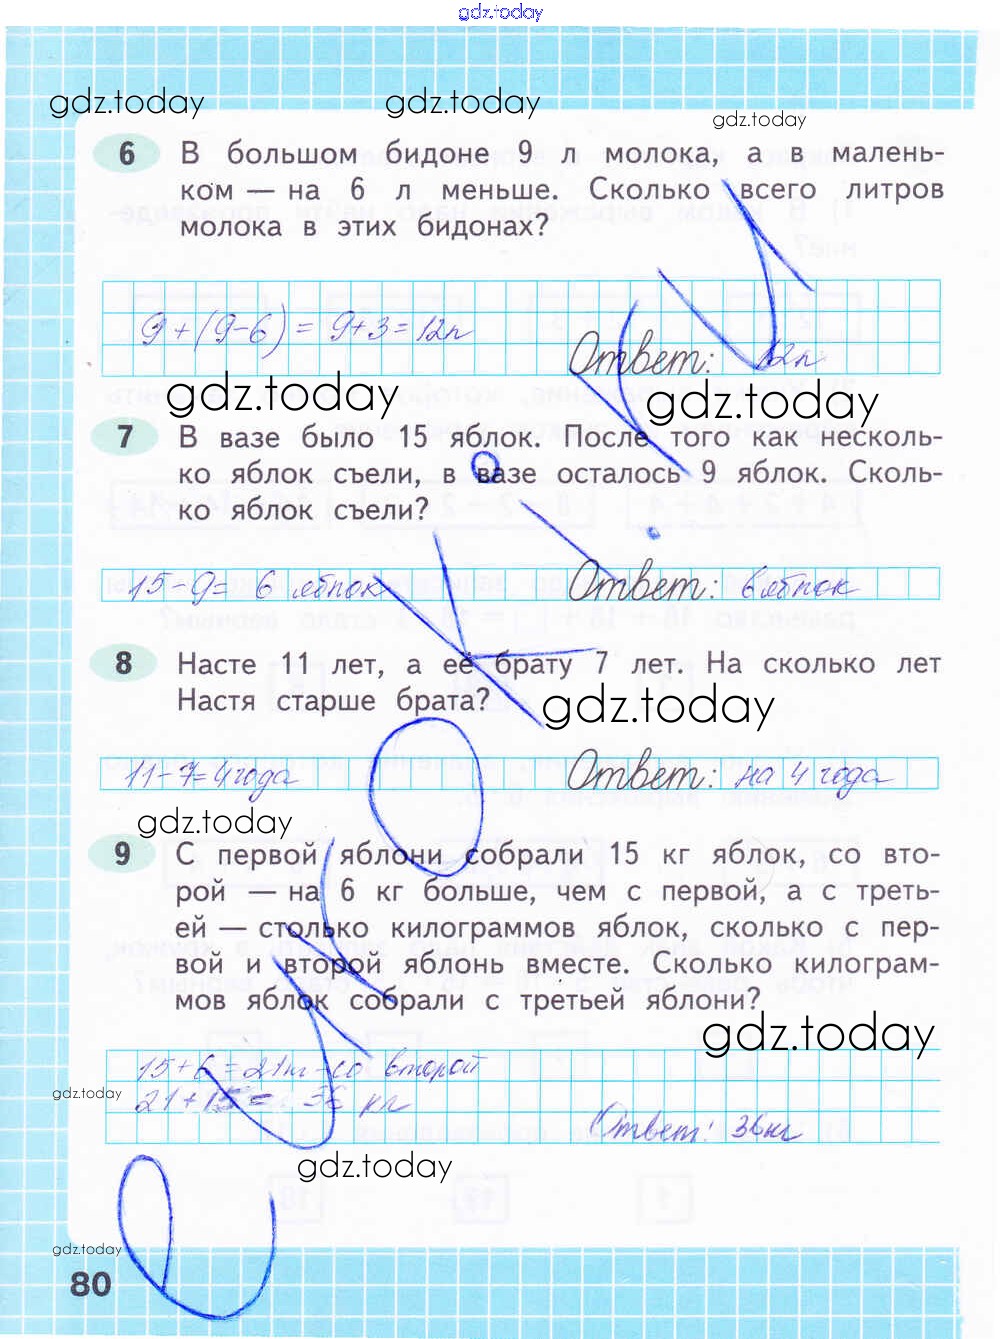 gdz.today
gdz.today
gdz.today
gdz.today
6 В большом бидоне 9 л молока, а в малень-
ком — на 6 л меньше. Сколько всего литров
молока в этих бидонах?
9+(9-6) = 9+3 = 12л
Ответ: 12л
gdz.today
gdz.today
7 В вазе было 15 яблок. После того как несколь-
ко яблок съели, в вазе осталось 9 яблок. Сколь-
ко яблок съели?
15-9= 6 яблок
Ответ: 6 яблок
8 Насте 11 лет, а её брату 7 лет. На сколько лет
Настя старше брата?
gdz.today
11-7=4 года
Ответ: на 4 года
gdz.today
9 С первой яблони собрали 15 кг яблок, со вто-
рой — на 6 кг больше, чем с первой, а с треть-
ей — столько килограммов яблок, сколько с пер-
вой и второй яблонь вместе. Сколько килограм-
мов яблок собрали с третьей яблони?
gdz.today
15+6 = 21кг - со второй
gdz.today
21+15 = 36 кг
Ответ: 36кг
gdz.today
gdz.today
80